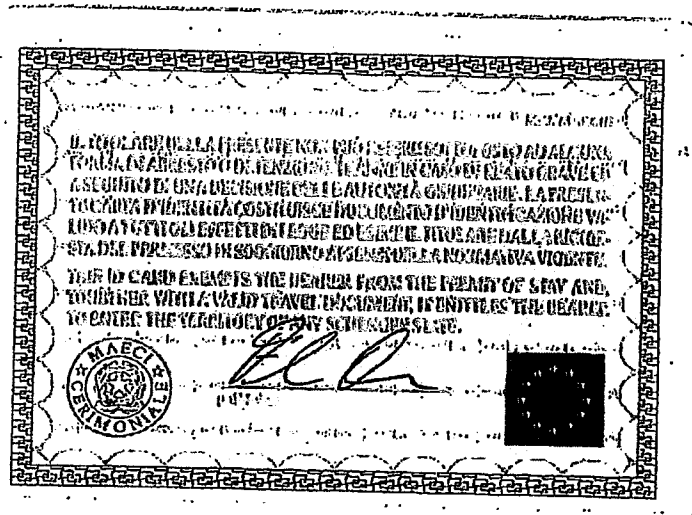 IL TITOLARE DELLA PRESENTE NON PUÒ ESSERE SOTTOPOSTO AD ALCUNA
FORMA DI ARRESTO O DI DETENZIONE, TRANNE IN CASO DI REATO GRAVE ED
A SEGUITO DI UNA DECISIONE DELLE AUTORITÀ GIUDIZIARIE. LA PRESEN-
TE CARTA D'IDENTITÀ COSTITUISCE DOCUMENTO D'IDENTIFICAZIONE VA-
LIDO A TUTTI GLI EFFETTI DI LEGGE ED ESIME IL TITOLARE DALLA RICHIE-
STA DEL PERMESSO DI SOGGIORNO AI SENSI DELLA NORMATIVA VIGENTE.
THIS ID CARD EXEMPTS THE BEARER FROM THE PERMIT OF STAY AND,
TOGETHER WITH A VALID TRAVEL DOCUMENT, IT ENTITLES THE BEARER
TO ENTER THE TERRITORY OF ANY SCHENGEN STATE.
MAECI
CERIMONIALE